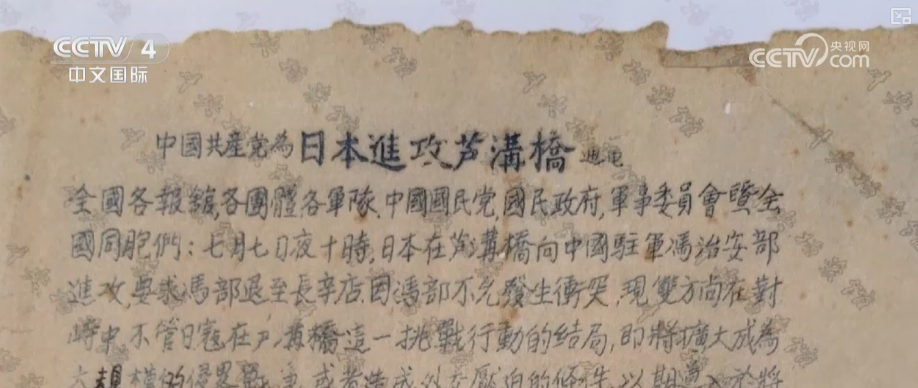 CCTV 4
中文国际
央视网
CCTV.com
中國共産党為日本進攻芦溝橋通电
全國各報舘,各團體各軍隊.中國國民党,國民政府,軍事委員會暨全
國同胞們:七月七日夜十時,日本在芦溝橋向中國駐軍馮治安部
進攻,要求馮部退至長辛店,因馮部不允發生衝突,現雙方尚在對
峙中,不管日寇在芦溝橋這一挑戰行動的结局,即將擴大成為
大規模的侵畧戰争,或者造成外交壓迫的條件,以期導入於將